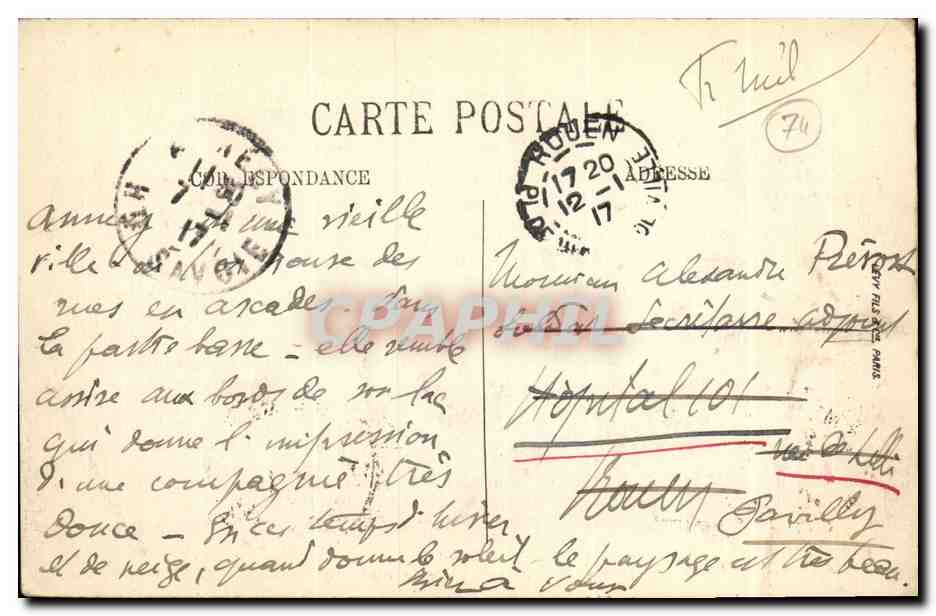 Fr Mil
74
CARTE POSTALE
CORRESPONDANCE
ADRESSE
ROUEN
17 20
12 - 1
17
ANNECY
HTE SAVOIE
CPAPHIL
Annecy est une vieille
ville où l'on trouse des
rues en arcades dans
la partie basse - elle semble
assise aux bords de son lac
qui donne l'impression
d'une compagnie très
douce - En ces temps d'hiver
et de neige, quand donne le soleil le paysage est très beau.
Bien à vous
Monsieur Alexandre Prévost
Soldat Secrétaire adjoint
Hôpital 101
rue de Lille
Rouen
Pavilly
LEVY FILS & Cie, PARIS.